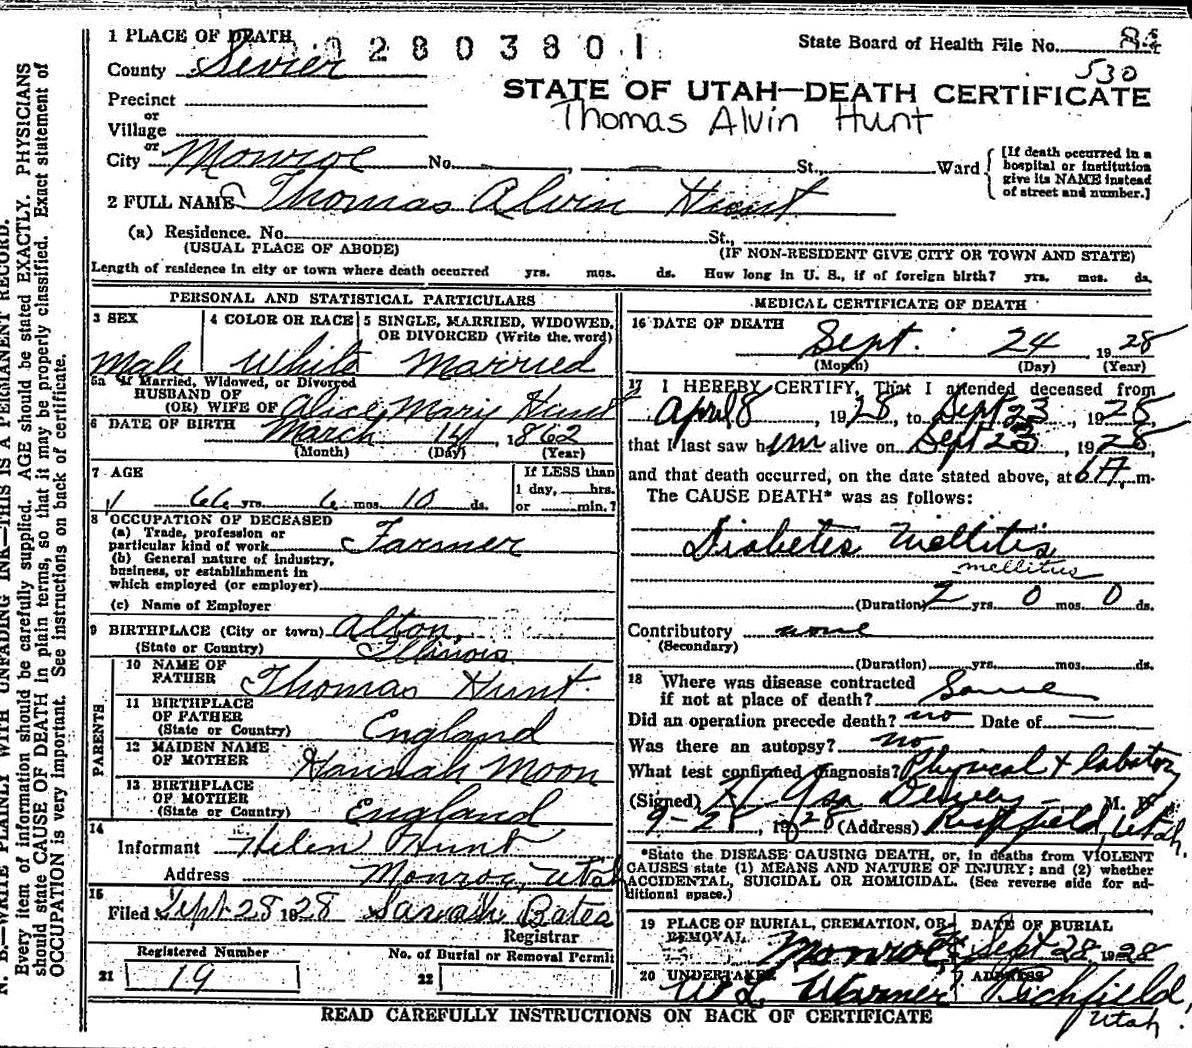 1 PLACE OF DEATH 2 8 0 3 8 0 1 State Board of Health File No. 84
County Sevier 530
STATE OF UTAH—DEATH CERTIFICATE
Precinct
or
Thomas Alvin Hunt
Village
or
City Monroe No. St., Ward
[If death occurred in a hospital or institution give its NAME instead of street and number.]
2 FULL NAME Thomas Alvin Hunt
(a) Residence. No. St.,
(USUAL PLACE OF ABODE) (IF NON-RESIDENT GIVE CITY OR TOWN AND STATE)
Length of residence in city or town where death occurred yrs. mos. ds. How long in U. S., if of foreign birth? yrs. mos. ds.
PERSONAL AND STATISTICAL PARTICULARS
3 SEX 4 COLOR OR RACE 5 SINGLE, MARRIED, WIDOWED, OR DIVORCED (Write the word)
Male White Married
5a If Married, Widowed, or Divorced
HUSBAND OF
(OR) WIFE OF Alice Mary Hunt
6 DATE OF BIRTH March 14 1862
(Month) (Day) (Year)
7 AGE If LESS than
1 day, hrs.
66 yrs. 6 mos. 10 ds. or min.?
8 OCCUPATION OF DECEASED
(a) Trade, profession or
particular kind of work Farmer
(b) General nature of industry,
business, or establishment in
which employed (or employer)
(c) Name of Employer
9 BIRTHPLACE (City or town) Alton,
(State or Country) Illinois
PARENTS
10 NAME OF
FATHER Thomas Hunt.
11 BIRTHPLACE
OF FATHER England
(State or Country)
12 MAIDEN NAME
OF MOTHER Hannah Moon
13 BIRTHPLACE
OF MOTHER England
(State or Country)
14
Informant Helen Hunt
Address Monroe, Utah
15
Filed Sept 28 1928 Sarah Bates
Registrar
Registered Number No. of Burial or Removal Permit
21 19 22
MEDICAL CERTIFICATE OF DEATH
16 DATE OF DEATH
Sept. 24 1928
(Month) (Day) (Year)
17 I HEREBY CERTIFY, That I attended deceased from
April 8, 1928, to Sept 23, 1928,
that I last saw him alive on Sept 23, 1928
and that death occurred, on the date stated above, at 6 A. m.
The CAUSE DEATH* was as follows:
Diabetes Mellitis
mellitus
(Duration) 2 yrs. 0 mos. 0 ds.
Contributory none
(Secondary)
(Duration) yrs. mos. ds.
18 Where was disease contracted
if not at place of death? Same
Did an operation precede death? no Date of —
Was there an autopsy? no
What test confirmed diagnosis? Physical & labatory
(Signed) Dewey M. D.
9-28, 1928 (Address) Richfield, Utah.
*State the DISEASE CAUSING DEATH, or, in deaths from VIOLENT
CAUSES state (1) MEANS AND NATURE OF INJURY; and (2) whether
ACCIDENTAL, SUICIDAL OR HOMICIDAL. (See reverse side for ad-
ditional space.)
19 PLACE OF BURIAL, CREMATION, OR DATE OF BURIAL
REMOVAL
Monroe Sept 28 1928
20 UNDERTAKER ADDRESS
W L Warner Richfield,
Utah
READ CAREFULLY INSTRUCTIONS ON BACK OF CERTIFICATE
N. B.—WRITE PLAINLY WITH UNFADING INK—THIS IS A PERMANENT RECORD.
Every item of information should be carefully supplied. AGE should be stated EXACTLY. PHYSICIANS
should state CAUSE OF DEATH in plain terms, so that it may be properly classified. Exact statement of
OCCUPATION is very important. See instructions on back of certificate.